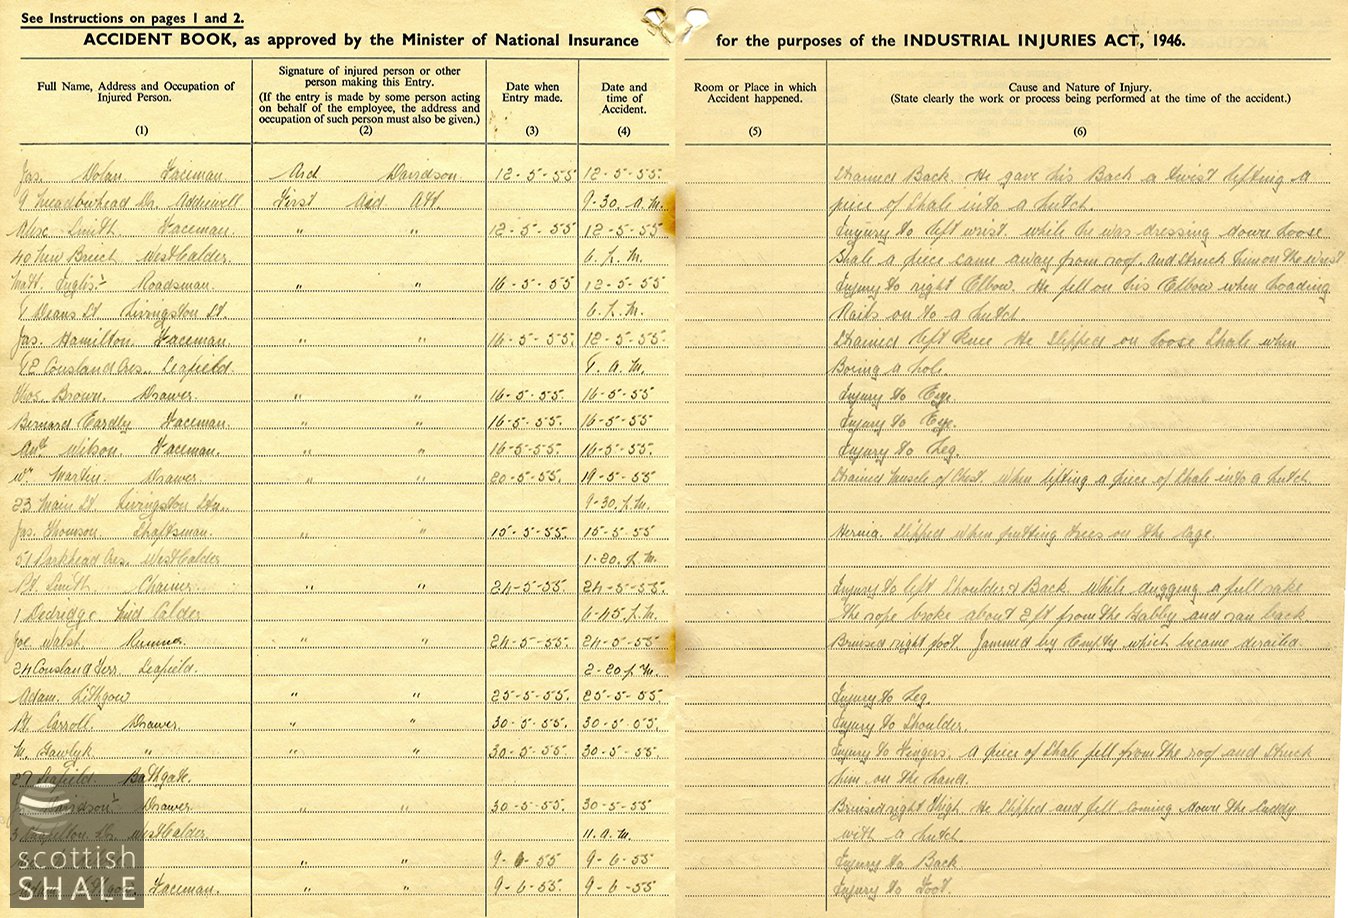 See Instructions on pages 1 and 2.
ACCIDENT BOOK, as approved by the Minister of National Insurance for the purposes of the INDUSTRIAL INJURIES ACT, 1946.
Full Name, Address and Occupation of Injured Person. (1)
Signature of injured person or other person making this Entry. (If the entry is made by some person acting on behalf of the employee, the address and occupation of such person must also be given.) (2)
Date when Entry made. (3)
Date and time of Accident. (4)
Room or Place in which Accident happened. (5)
Cause and Nature of Injury. (State clearly the work or process being performed at the time of the accident.) (6)
Jas. Dolan Faceman. Ard Davidson. 12-5-55 12-5-55. Strained Back. He gave his Back a twist lifting a
9 Meadowhead Av. Addiewell First Aid Att. 9-30. A.M. piece of Shale into a hutch.
Alex Smith Faceman. " " 12-5-55 12-5-55 Injury to left wrist. while he was dressing down loose
40 New Breich West Calder. 6. P.M. Shale a piece came away from roof. and struck him on the wrist
Matt. Inglis Roadsman. " " 16-5-55 12-5-55 Injury to right Elbow. He fell on his Elbow when loading
Deans St. Livingston St. 6. P.M. Rails on to a hutch.
Jas. Hamilton. Faceman. " " 16-5-55. 12-5-55 Strained left Knee He slipped on loose Shale when
Cousland Cres. Seafield. A.M. Boring a hole.
Thos. Brown. Drawer. " " 16-5-55. 16-5-55 Injury to Eye.
Bernard Eardly Faceman. " " 16-5-55. 16-5-55 Injury to Eye.
Wilson Faceman. " " 16-5-55. 16-5-55. Injury to Leg.
Wm Martin. Drawer. " " 20-5-55 19-5-55 Strained muscle of Chest. When lifting a piece of Shale into a hutch
23 Main St. Livingston Stn. 9-30. P.M.
Jas. Thomson. Shaftsman. " " 15-5-55. 15-5-55 Hernia. Slipped when putting trees on the cage.
51 Parkhead Cres. West Calder 1-20. P.M.
Smith. " " 24-5-55. 24-5-55. Injury to left Shoulder & Back. While dragging a full rake
1 Dedridge Mid Calder 6-45. P.M. The rope broke about 2ft from the and ran back
Joe Walsh. Runner " " 24-5-55. 24-5-55 Bruised right foot. Jammed by Empty which became derailed.
24 Cousland Terr. Seafield. 2-20. P.M.
Adam. Lithgow " " 25-5-55. 25-5-55. Injury to Leg.
Carroll. Drawer. " " 30-5-55. 30-5-55. Injury to Shoulder.
M. Gawlyk " " " 30-5-55. 30-5-55. Injury to Fingers. A piece of Shale fell from the roof and struck
27 Seafield. Bathgate. him on the hand.
Davidson Drawer " " 30-5-55. 30-5-55 Bruised right thigh He slipped and fell coming down the
West Calder. 11. A.M. with a hutch
" " 9-6-55 9-6-55 Injury to Back
Faceman. " " 9-6-55. 9-6-55 Injury to Foot.
scottish
SHALE